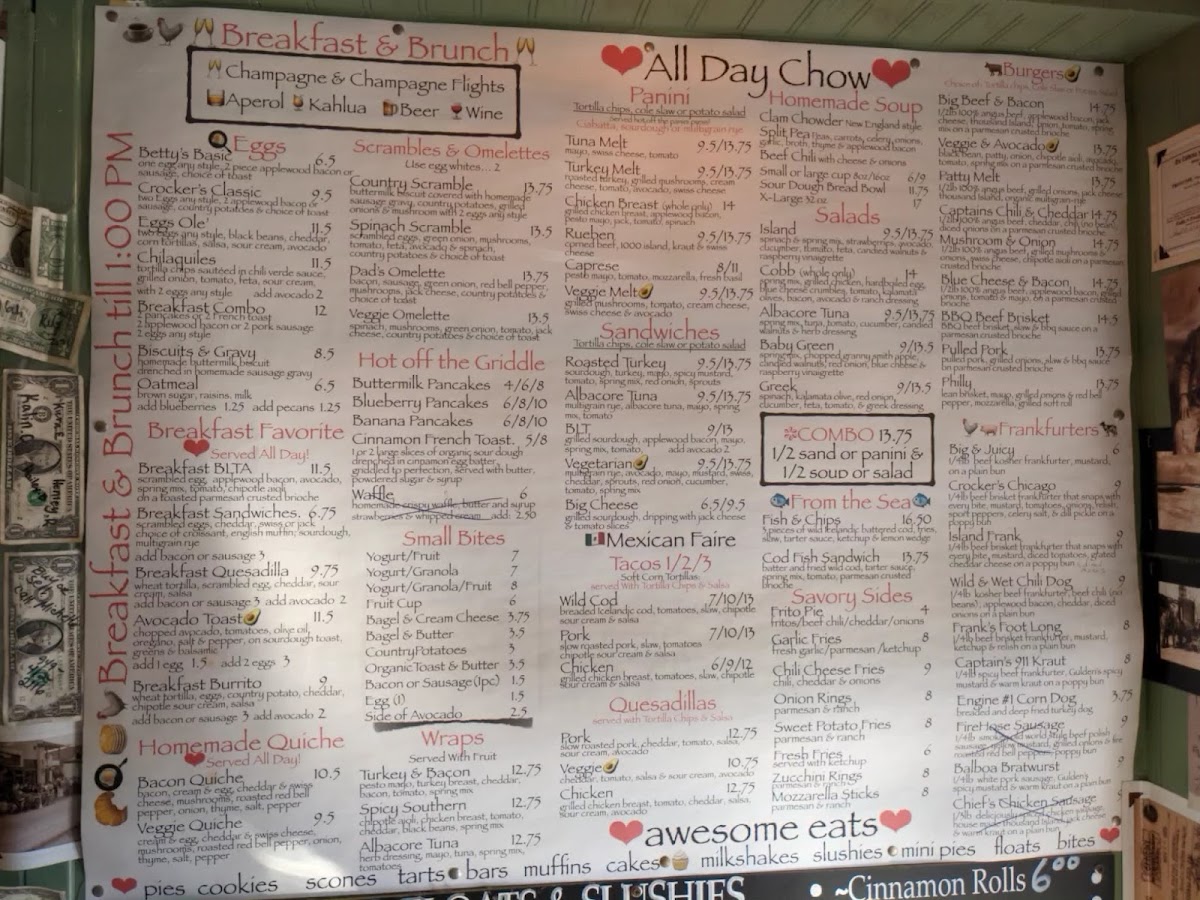 Breakfast & Brunch
Champagne & Champagne Flights
Aperol Kahlua Beer Wine
Breakfast & Brunch till 1:00 PM
Eggs
Betty's Basic 6.5
one egg any style, 2 piece applewood bacon or
sausage, choice of toast
Crocker's Classic 9.5
two Eggs any style, 2 applewood bacon or
sausage, country potatoes & choice of toast
Eggs Ole' 11.5
two eggs any style, black beans, cheddar,
corn tortillas, salsa, sour cream, avocado
Chilaquiles 11.5
tortilla chips sautéed in chili verde sauce,
grilled onion, tomato, feta, sour cream,
with 2 eggs any style add avocado 2
Breakfast Combo 12
2 pancakes or 2 french toast
2 applewood bacon or 2 pork sausage
2 eggs any style
Biscuits & Gravy 8.5
homemade buttermilk biscuit
drenched in homemade sausage gravy
Oatmeal 6.5
brown sugar, raisins, milk
add blueberries 1.25 add pecans 1.25
Breakfast Favorite
Served All Day!
Breakfast BLTA 11.5
scrambled egg, applewood bacon, avocado,
spring mix, tomato, chipotle aioli
on a toasted parmesan crusted brioche
Breakfast Sandwiches. 6.75
scrambled eggs, cheddar, swiss or jack
choice of croissant, english muffin, sourdough,
multigrain rye
add bacon or sausage 3
Breakfast Quesadilla 9.75
wheat tortilla, scrambled egg, cheddar, sour
cream, salsa
add bacon or sausage 3 add avocado 2
Avocado Toast 11.5
chopped avocado, tomatoes, olive oil,
oregano, salt & pepper, on sourdough toast,
greens & balsamic
add 1 egg 1.5 add 2 eggs 3
Breakfast Burrito 9
wheat tortilla, eggs, country potato, cheddar,
chipotle sour cream, salsa
add bacon or sausage 3 add avocado 2
Homemade Quiche
Served All Day!
Bacon Quiche 10.5
bacon, cream & egg, cheddar & swiss
cheese, mushrooms, roasted red bell
pepper, onion, thyme, salt, pepper
Veggie Quiche 9.5
cream & egg, cheddar & swiss cheese,
mushrooms, roasted red bell pepper, onion,
thyme, salt, pepper
Scrambles & Omelettes
Use egg whites... 2
Country Scramble 13.75
buttermilk biscuit covered with homemade
sausage gravy, country potatoes, grilled
onions & mushroom with 2 eggs any style
Spinach Scramble 13.5
scrambled eggs, green onion, mushrooms,
tomato, feta, avocado & spinach,
country potatoes & choice of toast
Dad's Omelette 13.75
bacon, sausage, green onion, red bell pepper,
mushrooms, jack cheese, country potatoes &
choice of toast
Veggie Omelette 13.5
spinach, mushrooms, green onion, tomato, jack
cheese, country potatoes & choice of toast
Hot off the Griddle
Buttermilk Pancakes 4/6/8
Blueberry Pancakes 6/8/10
Banana Pancakes 6/8/10
Cinnamon French Toast. 5/8
1 or 2 large slices of organic sour dough
drenched in cinnamon egg batter,
griddled to perfection, served with butter,
powdered sugar & syrup
Waffle 6
homemade crispy waffle, butter and syrup
strawberries & whipped cream add: 2.50
Small Bites
Yogurt/Fruit 7
Yogurt/Granola 7
Yogurt/Granola/Fruit 8
Fruit Cup 6
Bagel & Cream Cheese 3.75
Bagel & Butter 3.5
CountryPotatoes 3
Organic Toast & Butter 3.5
Bacon or Sausage (1pc) 1.5
Egg (1) 1.5
Side of Avocado 2.5
Wraps
Served With Fruit
Turkey & Bacon 12.75
pesto mayo, turkey breast, cheddar,
bacon, tomato, spring mix
Spicy Southern 12.75
chipotle aioli, chicken breast, tomato,
cheddar, black beans, spring mix
Albacore Tuna 12.75
herb dressing, mayo, tuna, spring mix,
tomatoes
All Day Chow
Panini
Tortilla chips, cole slaw or potato salad
Ciabatta, sourdough or multigrain rye
Tuna Melt 9.5/13.75
mayo, swiss cheese, tomato
Turkey Melt 9.5/13.75
roasted turkey, grilled mushrooms, cream
cheese, tomato, avocado, swiss cheese
Chicken Breast (whole only) 14
grilled chicken breast, applewood bacon,
pesto mayo, jack, tomato, spinach
Rueben 9.5/13.75
corned beef, 1000 island, kraut & swiss
cheese
Caprese 8/11
pesto mayo, tomato, mozzarella, fresh basil
Veggie Melt 9.5/13.75
grilled mushrooms, tomato, cream cheese,
swiss cheese & avocado
Sandwiches
Tortilla chips, cole slaw or potato salad
Roasted Turkey 9.5/13.75
sourdough, turkey, mayo, spicy mustard,
tomato, spring mix, red onion, sprouts
Albacore Tuna 9.5/13.75
multigrain rye, albacore tuna, mayo, spring
mix, tomato
BLT 9/13
grilled sourdough, applewood bacon, mayo,
spring mix, tomato add avocado 2
Vegetarian 9.5/13.75
multigrain rye, avocado, mayo, mustard, swiss,
cheddar, sprouts, red onion, cucumber,
tomato, spring mix
Big Cheese 6.5/9.5
grilled sourdough, dripping with jack cheese
& tomato slices
Mexican Faire
Tacos 1/2/3
Soft Corn Tortillas:
served With Tortilla Chips & Salsa
Wild Cod 7/10/13
breaded Icelandic cod, tomatoes, slaw, chipotle
sour cream & salsa
Pork 7/10/13
slow roasted pork, slaw, tomatoes
chipotle sour cream & salsa
Chicken 6/9/12
grilled chicken breast, tomatoes, slaw, chipotle
sour cream & salsa
Quesadillas
served with Tortilla Chips & Salsa
Pork 12.75
slow roasted pork, cheddar, tomato, salsa,
sour cream, avocado
Veggie 10.75
cheddar, tomato, salsa & sour cream, avocado
Chicken 12.75
grilled chicken breast, tomato, cheddar, salsa,
sour cream, avocado
Homemade Soup
Clam Chowder New England style
Split Pea peas, carrots, celery, onions,
garlic, broth, thyme & applewood bacon
Beef Chili with cheese & onions
Small or large cup 8oz/16oz 6/9
Sour Dough Bread Bowl 11.75
X-Large 32 oz 17
Salads
Island 9.5/13.75
spinach & spring mix, strawberries, avocado,
cucumber, tomato, feta, candied walnuts &
raspberry vinaigrette
Cobb (whole only) 14
spring mix, grilled chicken, hardboiled egg,
blue cheese crumbles, tomato, kalamata
olives, bacon, avocado & ranch dressing
Albacore Tuna 9.5/13.75
spring mix, tuna, tomato, cucumber, candied
walnuts & herb dressing
Baby Green 9/13.5
spring mix, chopped granny smith apple,
candied walnuts, red onion, blue cheese &
raspberry vinaigrette
Greek 9/13.5
spinach, kalamata olive, red onion,
cucumber, feta, tomato, & greek dressing
COMBO 13.75
1/2 sand or panini &
1/2 soup or salad
From the Sea
Fish & Chips 16.50
3 pieces of wild Icelandic battered cod, fries,
slaw, tarter sauce, ketchup & lemon wedge
Cod Fish Sandwich 13.75
batter and fried wild cod, tarter sauce,
spring mix, tomato, parmesan crusted
brioche
Savory Sides
Frito Pie 4
fritos/beef chili/cheddar/onions
Garlic Fries 8
fresh garlic/parmesan /ketchup
Chili Cheese Fries 9
chili, cheddar & onions
Onion Rings 8
parmesan & ranch
Sweet Potato Fries 8
parmesan & ranch
Fresh Fries 6
served with ketchup
Zucchini Rings 8
parmesan & ranch
Mozzarella Sticks 8
parmesan & ranch
Burgers
Choice of: Tortilla chips, Cole Slaw or Potato Salad
Big Beef & Bacon 14.75
1/2lb 100% angus beef, applewood bacon, jack
cheese, thousand island, onion, tomato, spring
mix on a parmesan crusted brioche
Veggie & Avocado 13.75
black bean, patty, onion, chipotle aioli, avocado,
tomato, spring mix on a parmesan crusted brioche
Patty Melt 13.75
1/2lb 100% angus beef, grilled onions, jack cheese,
thousand island, organic multigrain rye
Captains Chili & Cheddar 14.75
1/2lb 100% angus beef, cheddar, chili (no beans),
diced onions on a parmesan crusted brioche
Mushroom & Onion 14.75
1/2lb 100% angus beef, grilled mushrooms &
onions, swiss cheese, chipotle aioli on a parmesan
crusted brioche
Blue Cheese & Bacon 14.75
1/2lb 100% angus beef, applewood bacon, grilled
onions, tomato & mayo, on a parmesan crusted
brioche
BBQ Beef Brisket 14.5
BBQ beef brisket, slaw & bbq sauce on a
parmesan crusted brioche
Pulled Pork 13.75
pulled pork, grilled onions, slaw & bbq sauce
on a parmesan crusted brioche
Philly 13.75
lean brisket, mayo, grilled onions & red bell
pepper, mozzarella, grilled soft roll
Frankfurters
Big & Juicy 6
1/4lb beef kosher frankfurter, mustard,
on a plain bun
Crocker's Chicago 9
1/4lb beef brisket frankfurter that snaps with
every bite, mustard, tomatoes, onions, relish,
sport peppers, celery salt, & dill pickle on a
poppy bun
Island Frank 9
1/4lb beef brisket frankfurter that snaps with
every bite, mustard, diced tomatoes, grated
cheddar cheese on a poppy bun
Wild & Wet Chili Dog 9
1/4lb kosher beef frankfurter, beef chili (no
beans), applewood bacon, cheddar, diced
onions on a plain bun
Frank's Foot Long 8
1/4lb beef brisket frankfurter, mustard,
ketchup & relish on a plain bun
Captain's 911 Kraut 8
1/4lb spicy beef frankfurter, Gulden's spicy
mustard & warm kraut on a poppy bun
Engine #1 Corn Dog 3.75
breaded and deep fried turkey dog
FireHose Sausage 9
1/4lb smoked old world style beef polish
sausage, yellow mustard, grilled onions & fire
roasted red bell peppers, poppy bun
Balboa Bratwurst 9
1/4lb white pork sausage, Gulden's
spicy mustard & warm kraut on a plain bun
Chief's Chicken Sausage
house made
& warm kraut on a plain bun
awesome eats
pies cookies scones tarts bars muffins cakes milkshakes slushies mini pies floats bites
& SLUSHIES
~Cinnamon Rolls 6.00